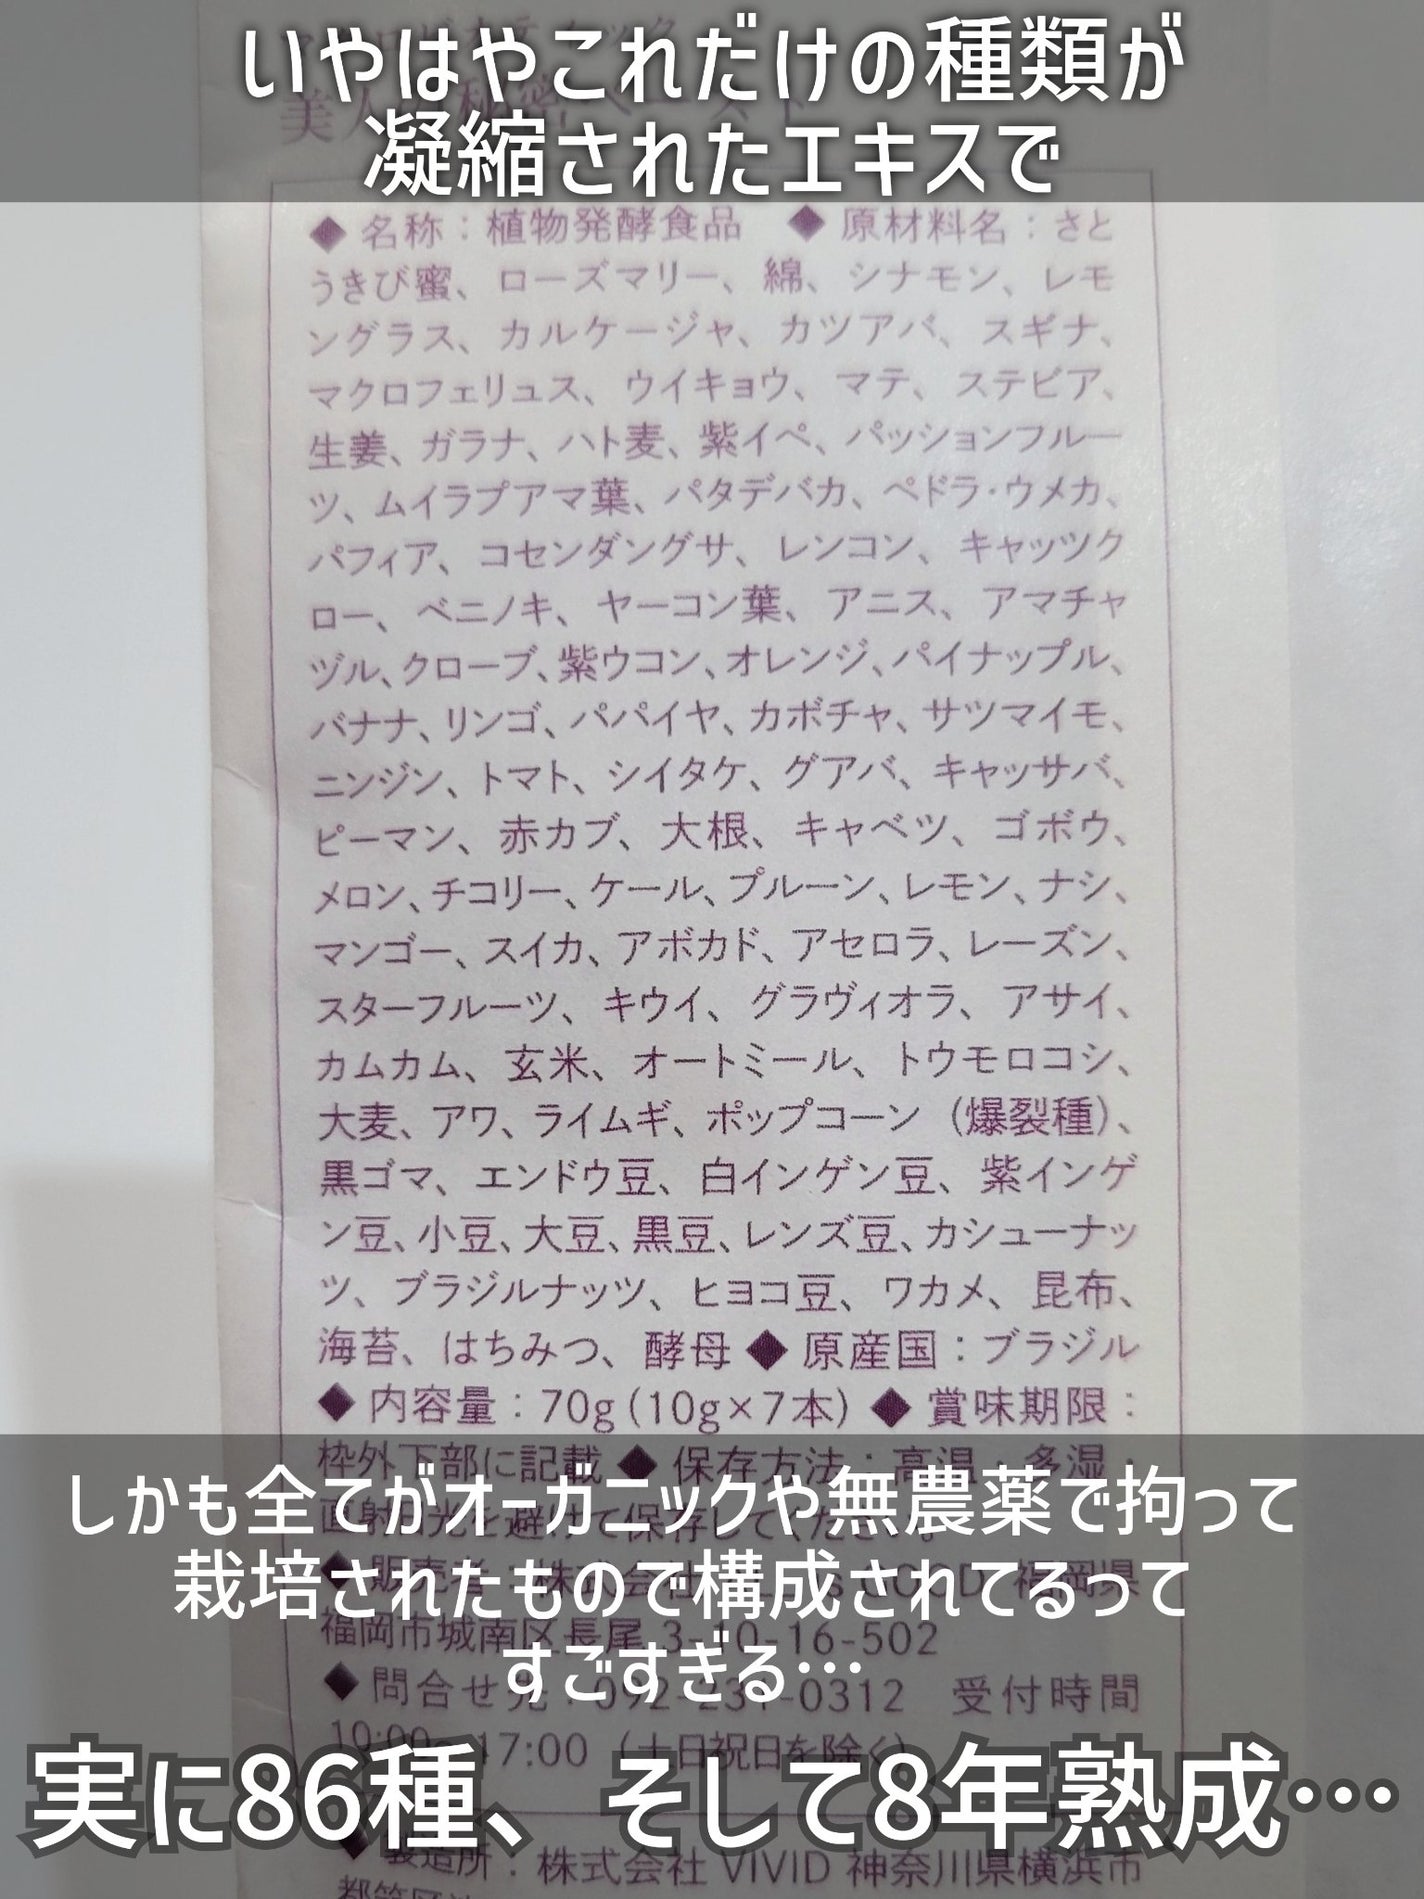 いやはやこれだけの種類が
凝縮されたエキスで
◆ 名称：植物発酵食品　◆ 原材料名：さと
うきび蜜、ローズマリー、綿、シナモン、レモ
ングラス、カルケージャ、カツアバ、スギナ、
マクロフェリュス、ウイキョウ、マテ、ステビア、
生姜、ガラナ、ハト麦、紫イペ、パッションフルー
ツ、ムイラプアマ葉、パタデバカ、ペドラ・ウメカ、
パフィア、コセンダングサ、レンコン、キャッツク
ロー、ベニノキ、ヤーコン葉、アニス、アマチャ
ヅル、クローブ、紫ウコン、オレンジ、パイナップル、
バナナ、リンゴ、パパイヤ、カボチャ、サツマイモ、
ニンジン、トマト、シイタケ、グアバ、キャッサバ、
ピーマン、赤カブ、大根、キャベツ、ゴボウ、
メロン、チコリー、ケール、プルーン、レモン、ナシ、
マンゴー、スイカ、アボカド、アセロラ、レーズン、
スターフルーツ、キウイ、グラヴィオラ、アサイ、
カムカム、玄米、オートミール、トウモロコシ、
大麦、アワ、ライムギ、ポップコーン（爆裂種）、
黒ゴマ、エンドウ豆、白インゲン豆、紫インゲ
ン豆、小豆、大豆、黒豆、レンズ豆、カシューナッ
ツ、ブラジルナッツ、ヒヨコ豆、ワカメ、昆布、
海苔、はちみつ、酵母 ◆ 原産国：ブラジル
◆ 内容量：70g (10g×7本) ◆ 賞味期限：
枠外下部に記載 ◆ 保存方法：高温・多湿・
直射日光を避けて保存してください。
しかも全てがオーガニックや無農薬で拘って
栽培されたもので構成されてるって
すごすぎる…
◆ 販売者：株式会社 福岡県
福岡市城南区長尾 3-10-16-502
◆ 問合せ先：092-231-0312　受付時間
10:00～17:00（土日祝日を除く）
実に86種、そして8年熟成…
◆ 製造所：株式会社 VIVID 神奈川県横浜市